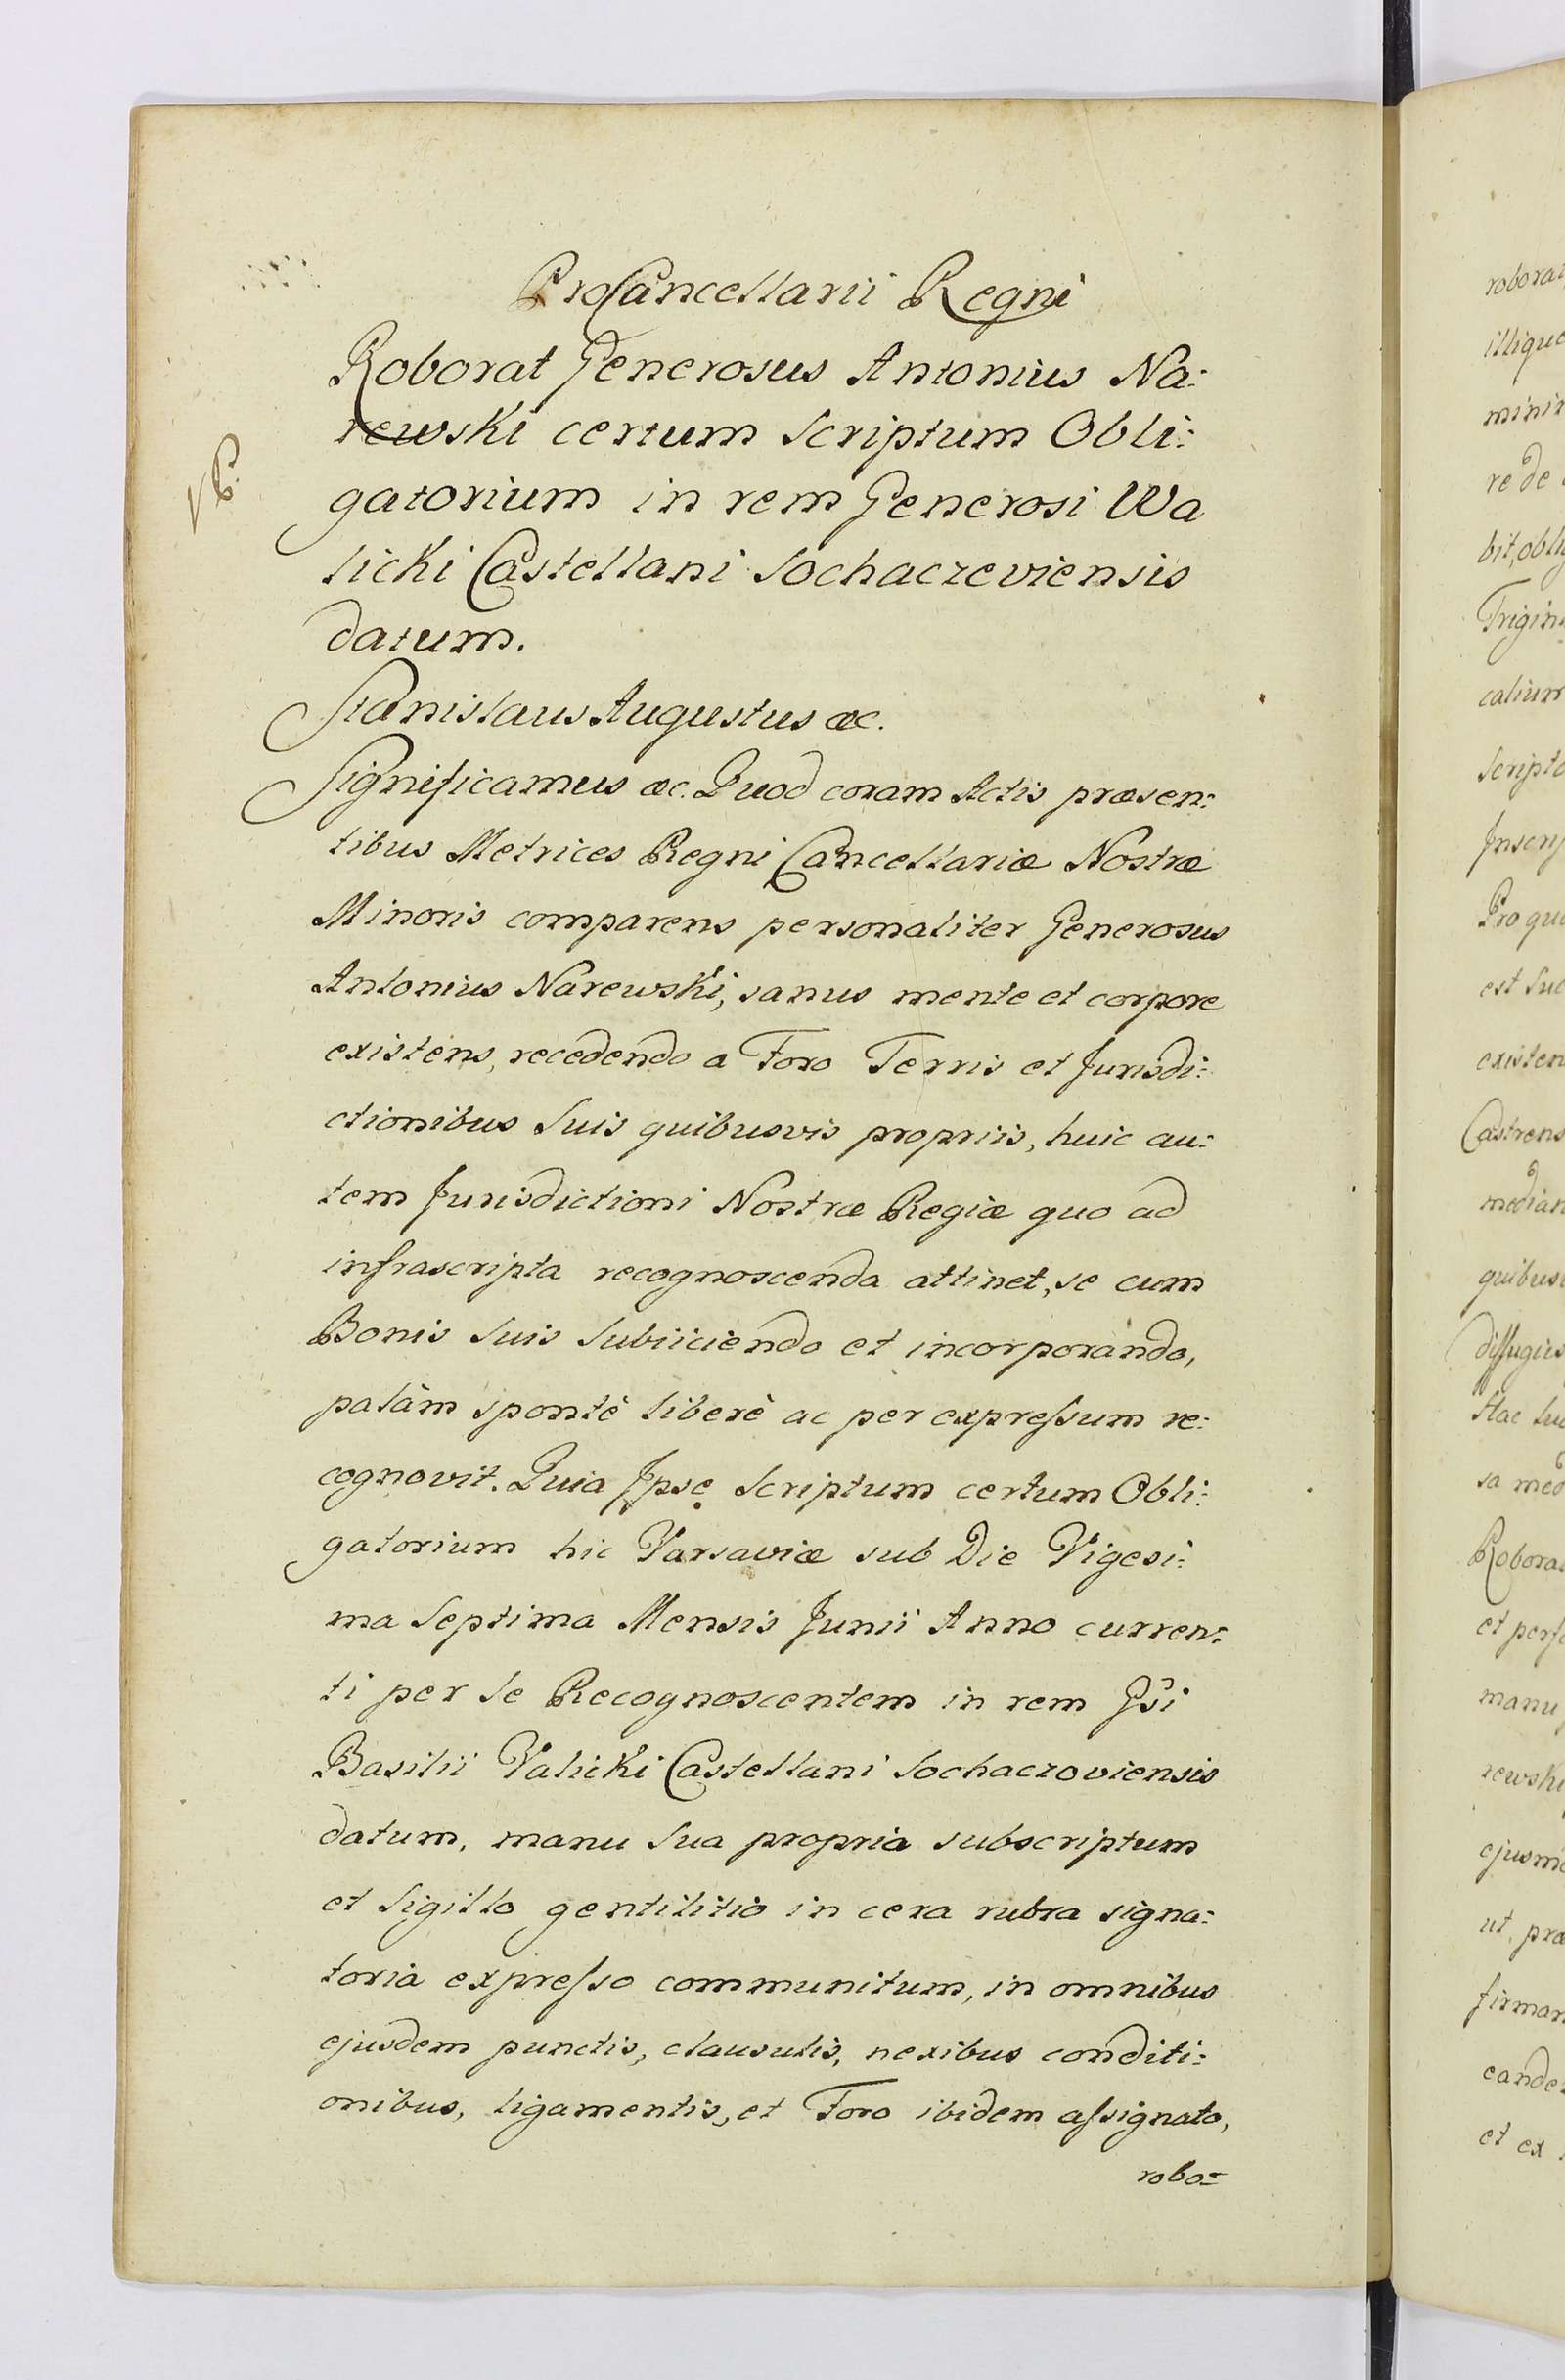 ProCancellarii Regni
Roborat Generosus Antonius Na:
rewski certum Scriptum Obli:
gatorium in rem Generosi Wa
licki Castellani Sochaczeviensis
datum.
Stanislaus Augustus &c.
Significamus &c. Quod coram Actis præsen:
tibus Metrices Regni Cancellariæ Nostræ
Minoris comparens personaliter Generosus
Antonius Narewski, sanus mente et corpore
existens, recedendo a Foro Terris et Jurisdi:
ctionibus Suis quibusvis propriis, huic au:
tem Jurisdictioni Nostræ Regiæ quo ad
infrascripta recognoscenda attinet, se cum
Bonis Suis Subiiciendo et incorporando,
palàm spontè liberè ac per expreſsum re:
cognovit. Quia Jpse Scriptum certum Obli:
gatorium hic Varsaviæ sub Die Vigesi:
ma Septima Mensis Junii Anno curren:
ti per Se Recognoscentem in rem Gsi
Basilii Valicki Castellani Sochaczoviensis
datum, manu Sua propria subscriptum
et Sigillo gentilitio in cera rubra signa:
toria expreſso communitum, in omnibus
ejusdem punctis, clausulis, nexibus conditi:
onibus, ligamentis, et Foro ibidem aſsignato,
robo=
robora
Trigin
calium
Pro qu
existen
Castrens
median
Robora
manu
rewski
ut, præ
firman
et ex